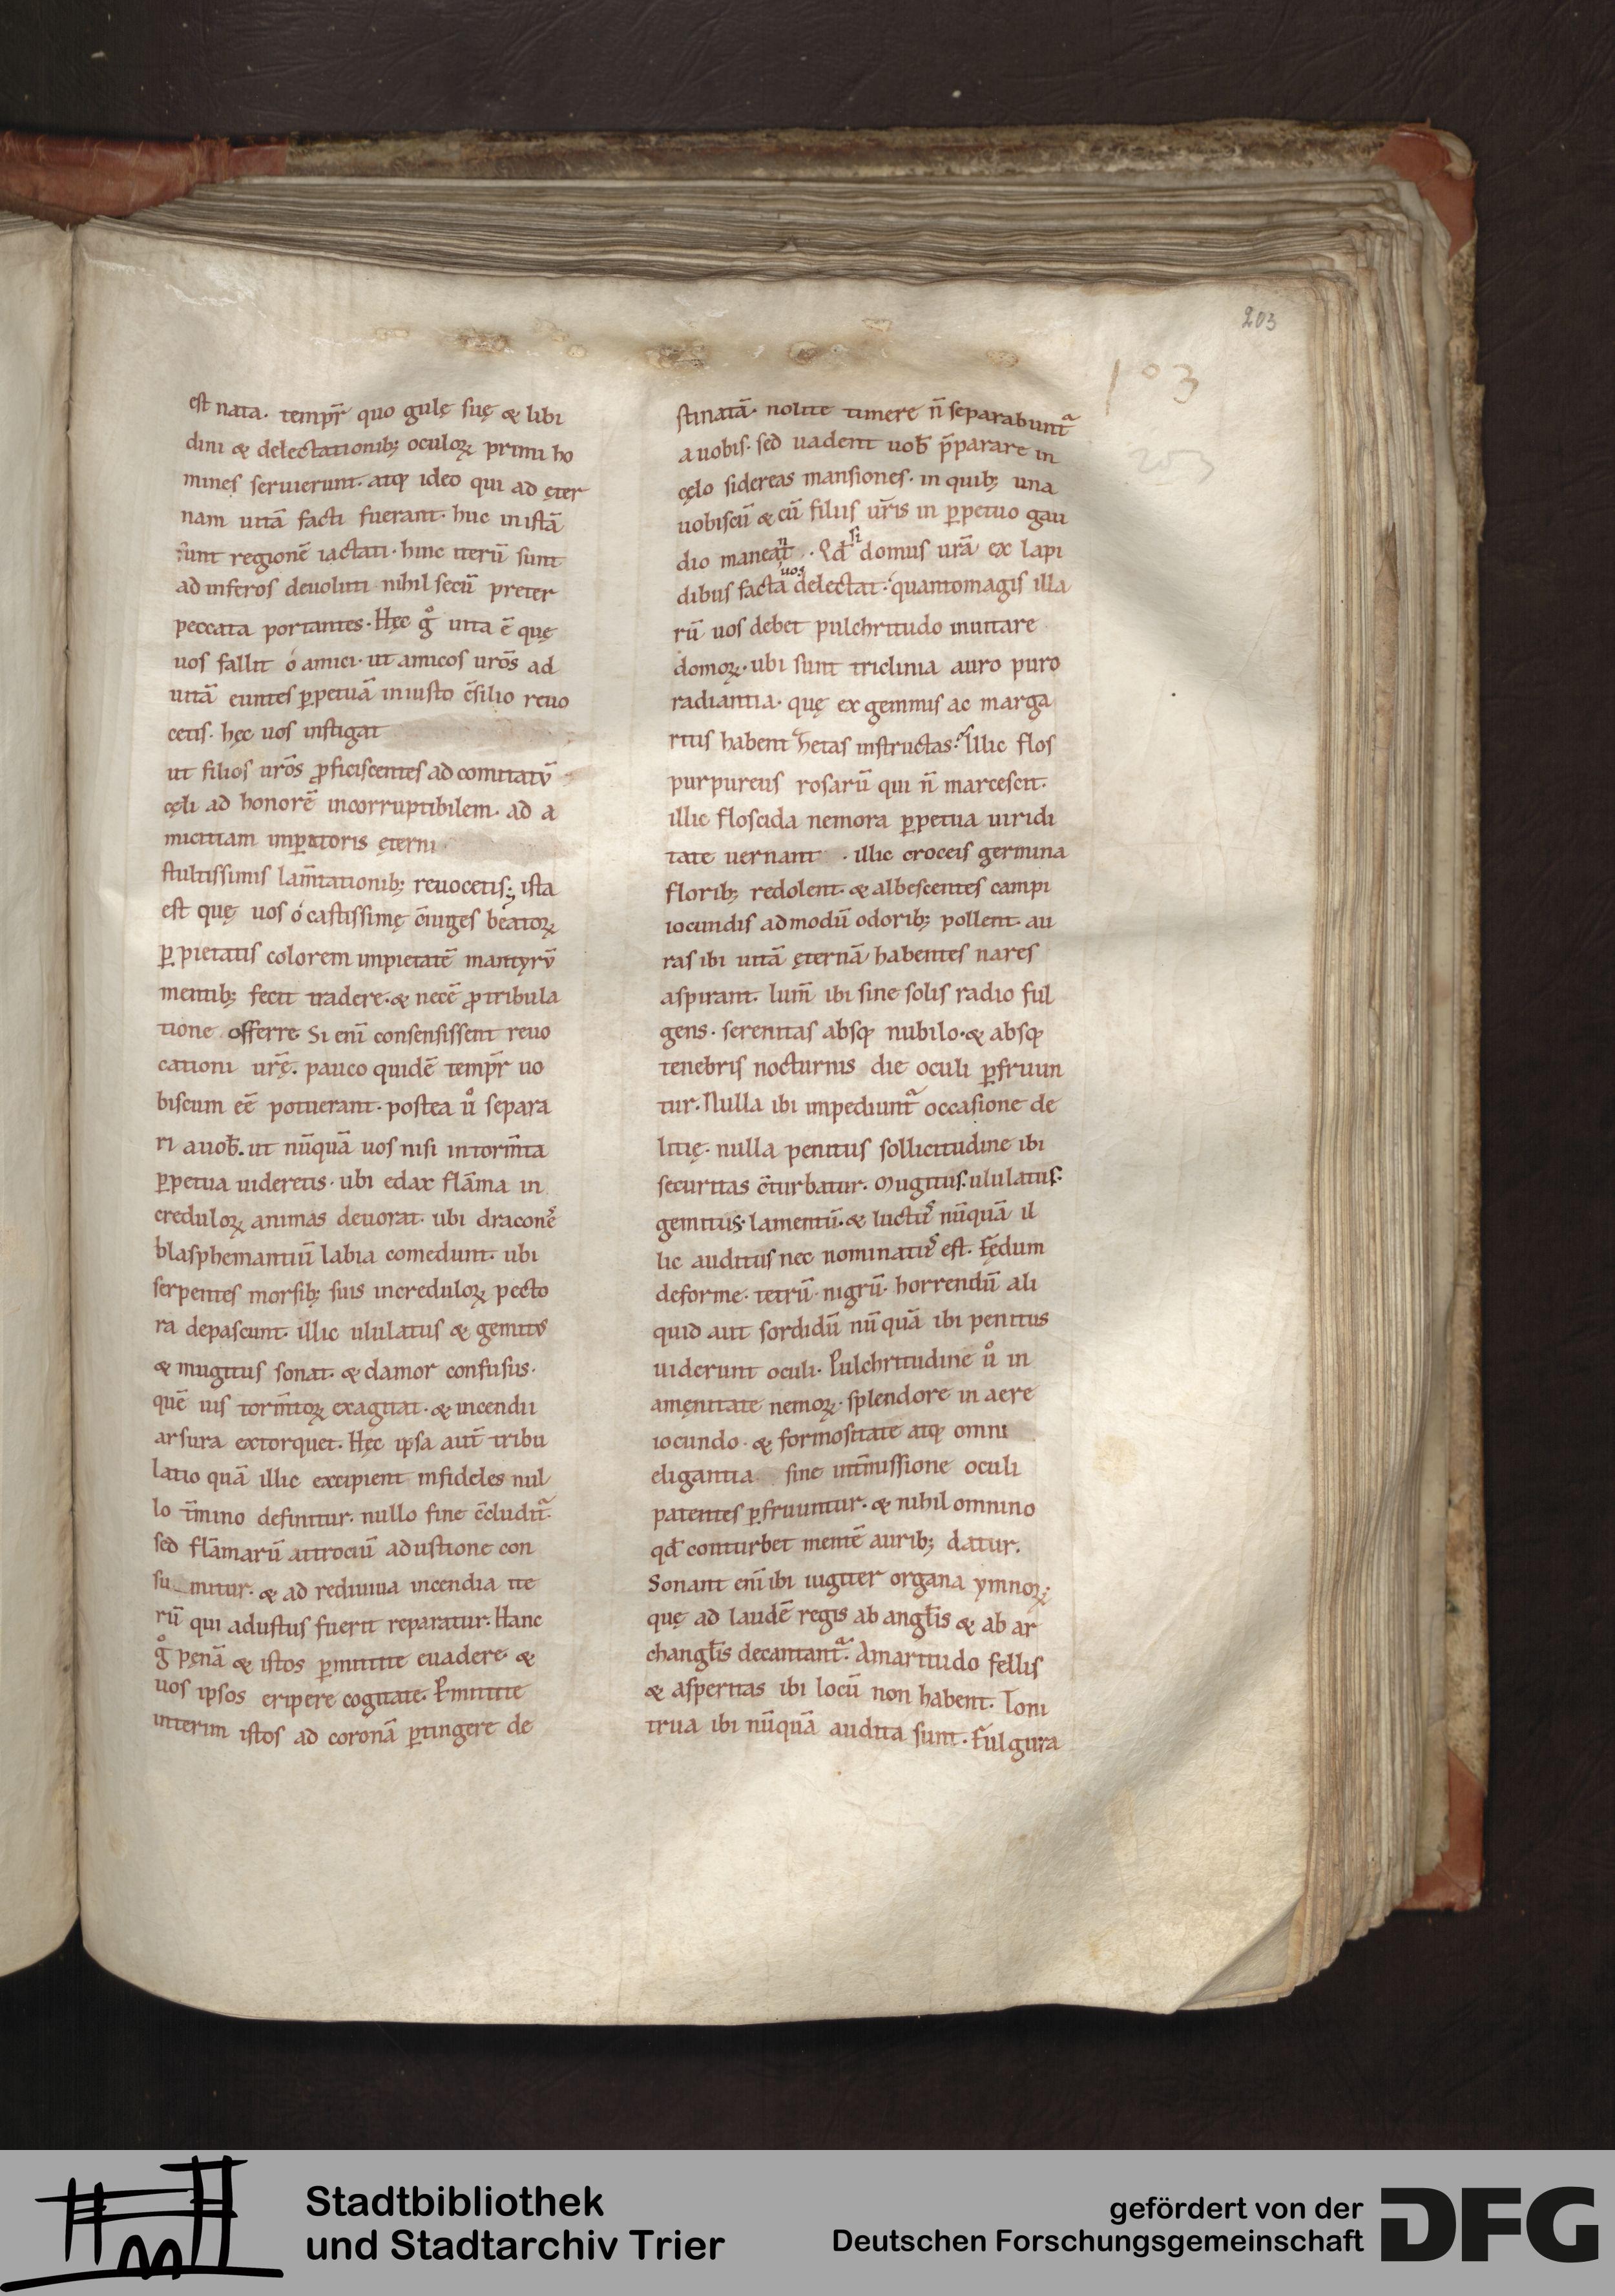 203
1°3
203
est nata. tempr̄ quo gulę suę & libi
dini & delectationib; oculoꝝ primi ho
mines seruierunt. atq; ideo qui ad ęter
nam uitā facti fuerant. huc in istā
sunt regionē iactati. hinc iterū sunt
ad inferos deuoluti nihil secū preter
peccata portantes. Hęc gͦ uita ē quę
uos fallit ó amici. ut amicos urōs ad
uitā euntes ꝑpetuā iniusto c̄silio reuo
cetis. hęc uos instigat
ut filios urōs ꝓficiscentes ad comitatū
cęli ad honorē incorruptibilem. ad a
micitiam imꝑatoris ęterni
stultissimis lam̄tationib; reuocetis; ista
est quę uos ó castissimę c̄iuges beatoꝝ
ꝑ pietatis colorem impietatē martyrū
mentib; fecit tradere. & necē ꝓ tribula
tione offerre Si enī consensissent reuo
cationi urę̄. pauco quidē tempr̄ uo
biscum eē potuerant. postea uͦ separa
ri a uob̄. ut nūquā uos nisi in torm̄ta
ꝑpetua uideretis. ubi edax flāma in
creduloꝝ animas deuorat. ubi draconeˢ
blasphemantiū labia comedunt. ubi
serpentes morsib; suis increduloꝝ pecto
ra depascunt. illic ululatus & gemitus
& mugitus sonat. & clamor confusus.
quē uis torm̄toꝝ exagitat. & incendii
arsura extorquet. Hęc ipsa aut̄ tribu
latio quā illic excipient infideles nul
lo t̄mino definitur. nullo fine c̄cludit᷑.
sed flāmarū atrociū adustione con
su_mitur. & ad rediuiua incendia ite
rū qui adustus fuerit reparatur. Hanc
gͦ penā & istos ꝑmittite euadere. &
uos ipsos eripere cogitate. Pmittite
interim istos ad coronā ꝑtingere de
stinatā. nolite timere n̄ separabunt᷑
a uobis. sed uadent uob̄ p̄parare in
cęlo sidereas mansiones. in quib; una
uobiscū & cū filiis ur̄is in ꝑpetuo gau
dio maneatⁿ. Qd̄ si domus urā ex lapi
dibus facta uos delectat. quantomagis illa
rū uos debet pulchritudo inuitare
domoꝝ. ubi sunt triclinia auro puro
radiantia. quę ex gemmis ac marga
ritis habent hetas instructas. Illic flos
purpureus rosarū qui n̄ marcescit.
illic floscida nemora ꝑpetua uiridi
tate uernant. illic croceis germina
florib; redolent. & albescentes campi
iocundis admodū odorib; pollent. au
ras ibi uitā ęternā habentes nares
aspirant. lum̄ ibi sine solis radio ful
gens. serenitas absq; nubilo. & absq;
tenebris nocturnis die oculi ꝑfruun
tur. Nulla ibi impediunt᷑ occasione de
litię. nulla penitus sollicitudine ibi
securitas c̄turbatur. Mugitus. ululatus.
gemitus. lamentū. & luctuˢ nūquā il
lic auditus nec nominatuˢ est. Fędum
deforme. tetrū. nigrū. horrendū ali
quid aut sordidū nūquā ibi penitus
uiderunt oculi. Pulchritudine uͦ in
amęnitate nemoꝝ. splendore in aere
iocundo. & formositate atq; omni
eligantia sine int̄missione oculi
patentes ꝑfruuntur. & nihil omnino
qd̄ conturbet mentē aurib; datur.
Sonant enī ibi iugiter organa ymnoꝝ;
quę ad laudē regis ab angl̄is & ab ar
changl̄is decantant᷑. Amaritudo fellis
& asperitas ibi locū non habent. Toni
trua ibi nūquā audita sunt. Fulgura
Stadtbibliothek
und Stadtarchiv Trier
gefördert von der
Deutschen Forschungsgemeinschaft
DFG